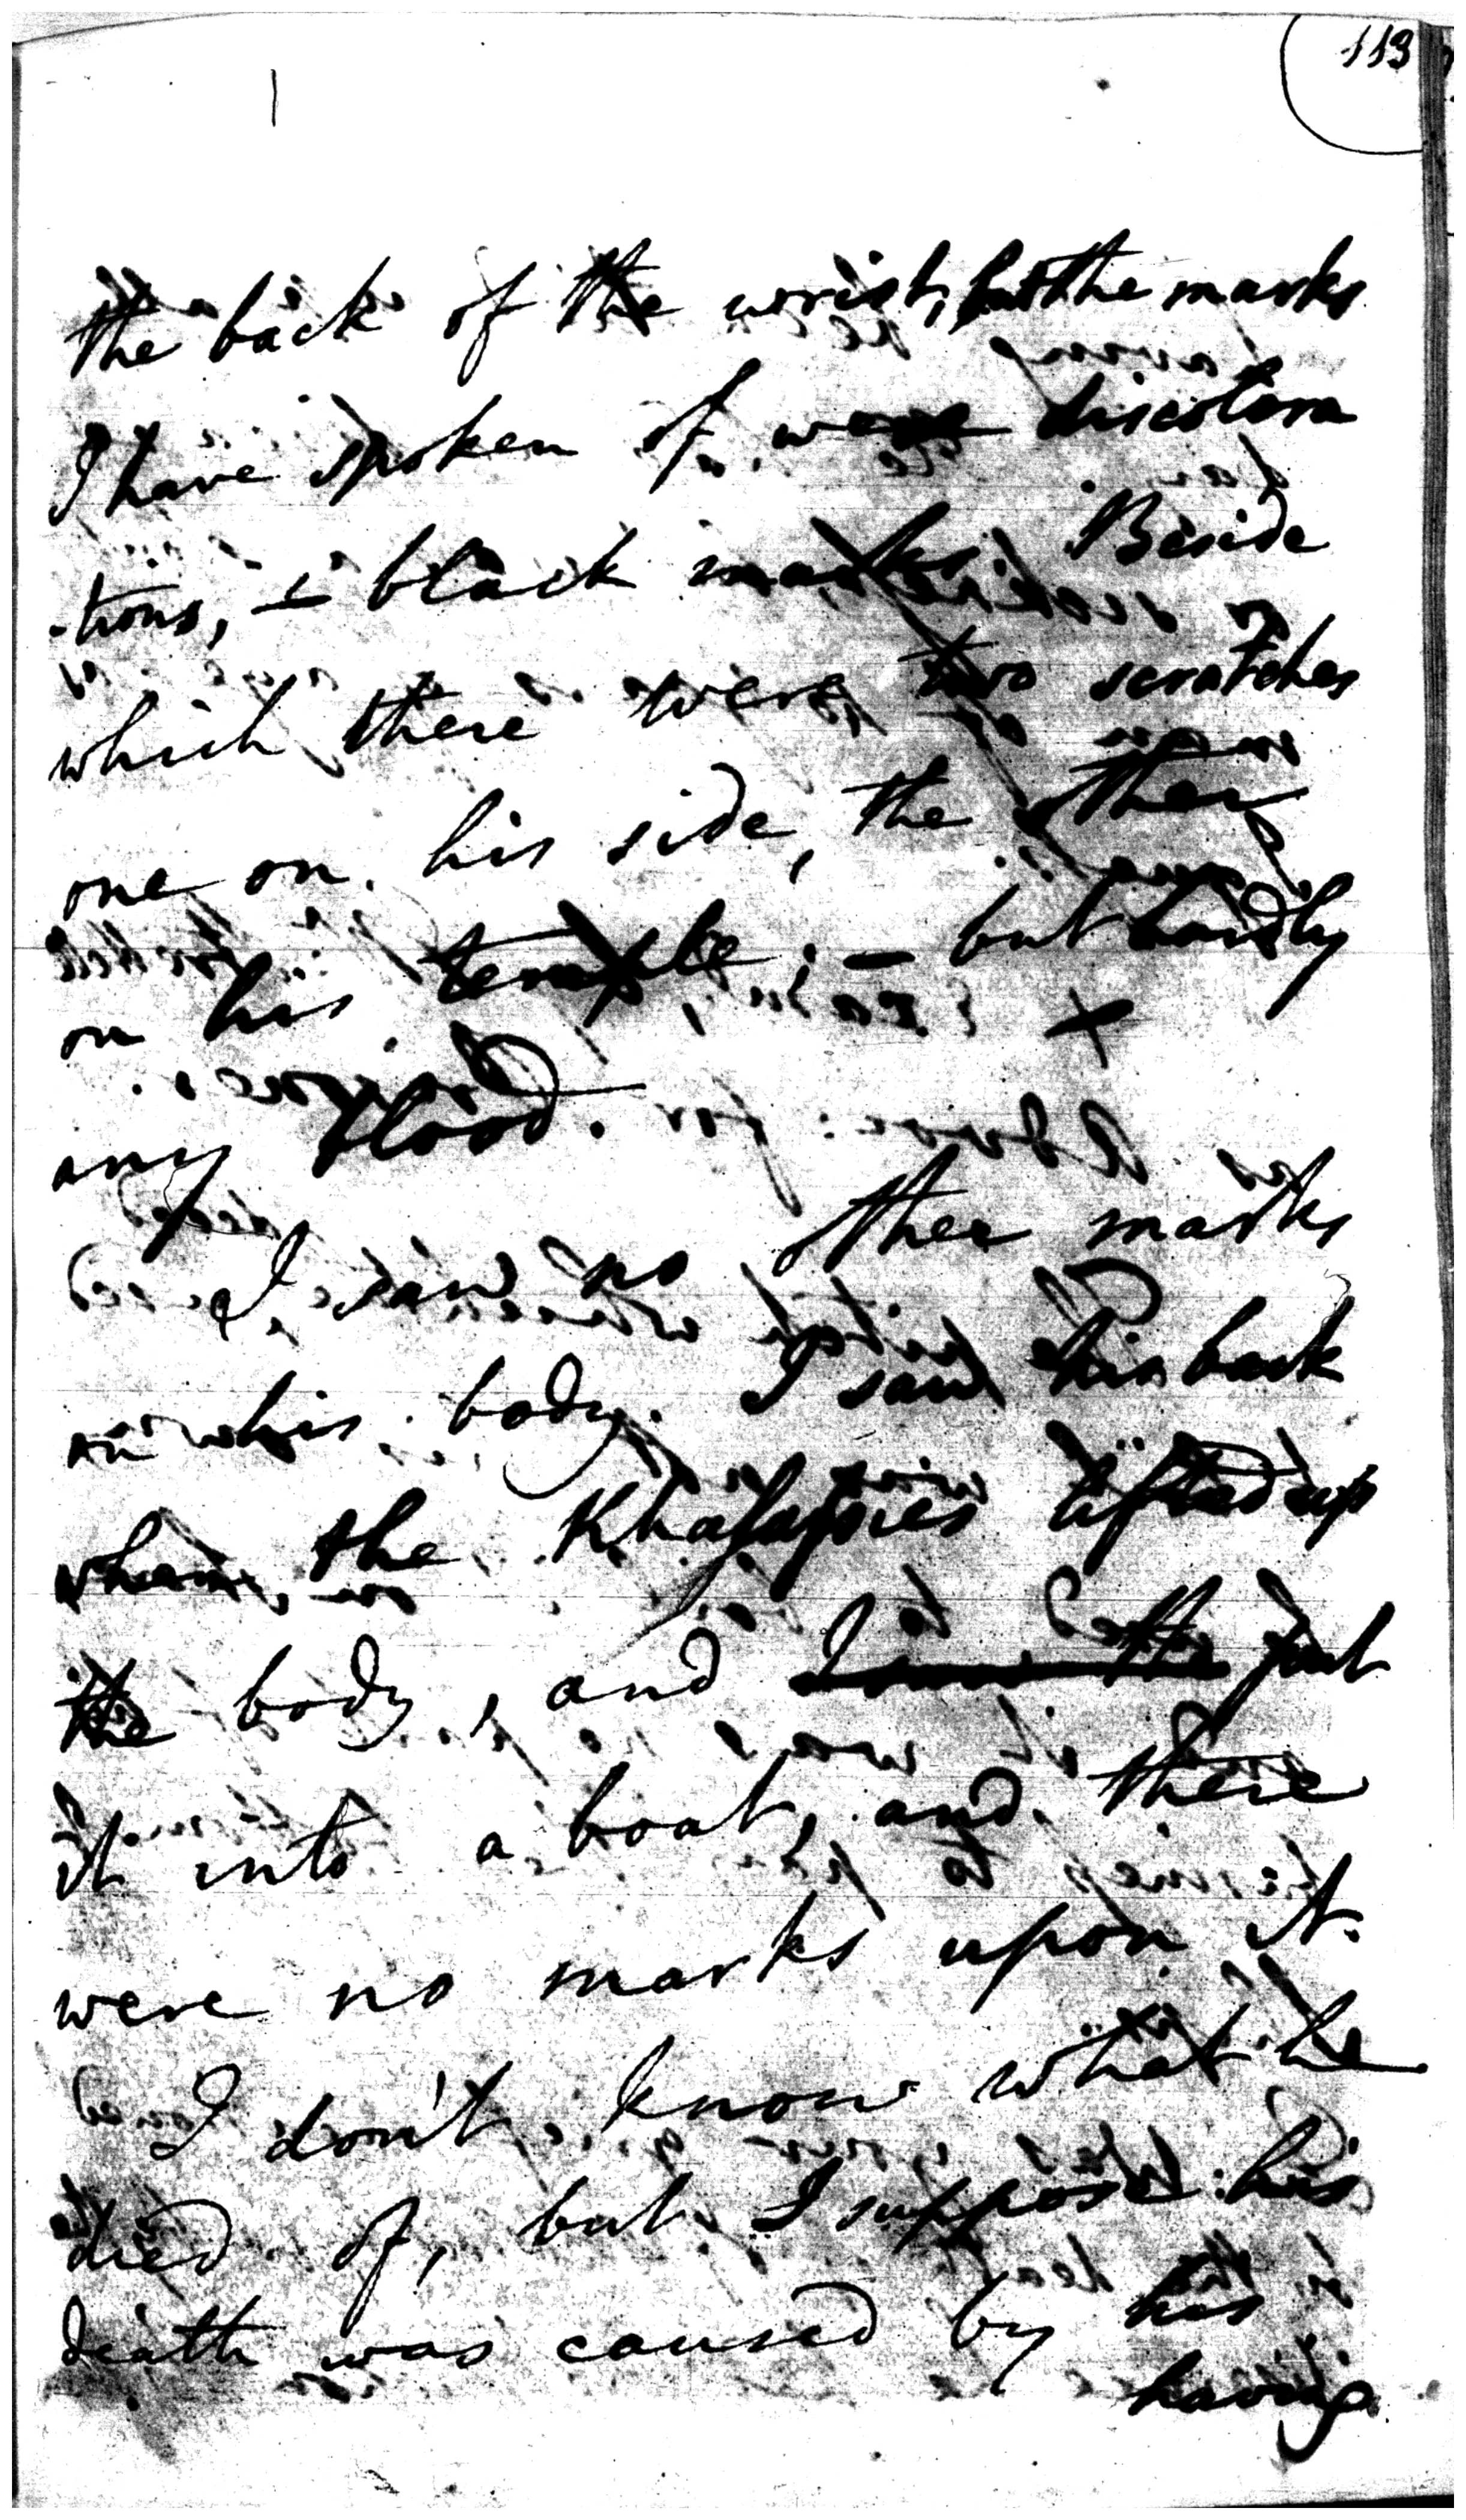 113
the back of the wrist, but the marks
I have spoken of were discolora
-tions, – black marks. Beside
which there were two scratches
one on his side, the other
on his temple; – but hardly
any blood.
I saw no other marks
on his body. I saw his back
when the Khalassies lifted up
the body, and put
it into a boat, and there
were no marks upon it.
I don't know what he
died of, but I suppose his
death was caused by his
having